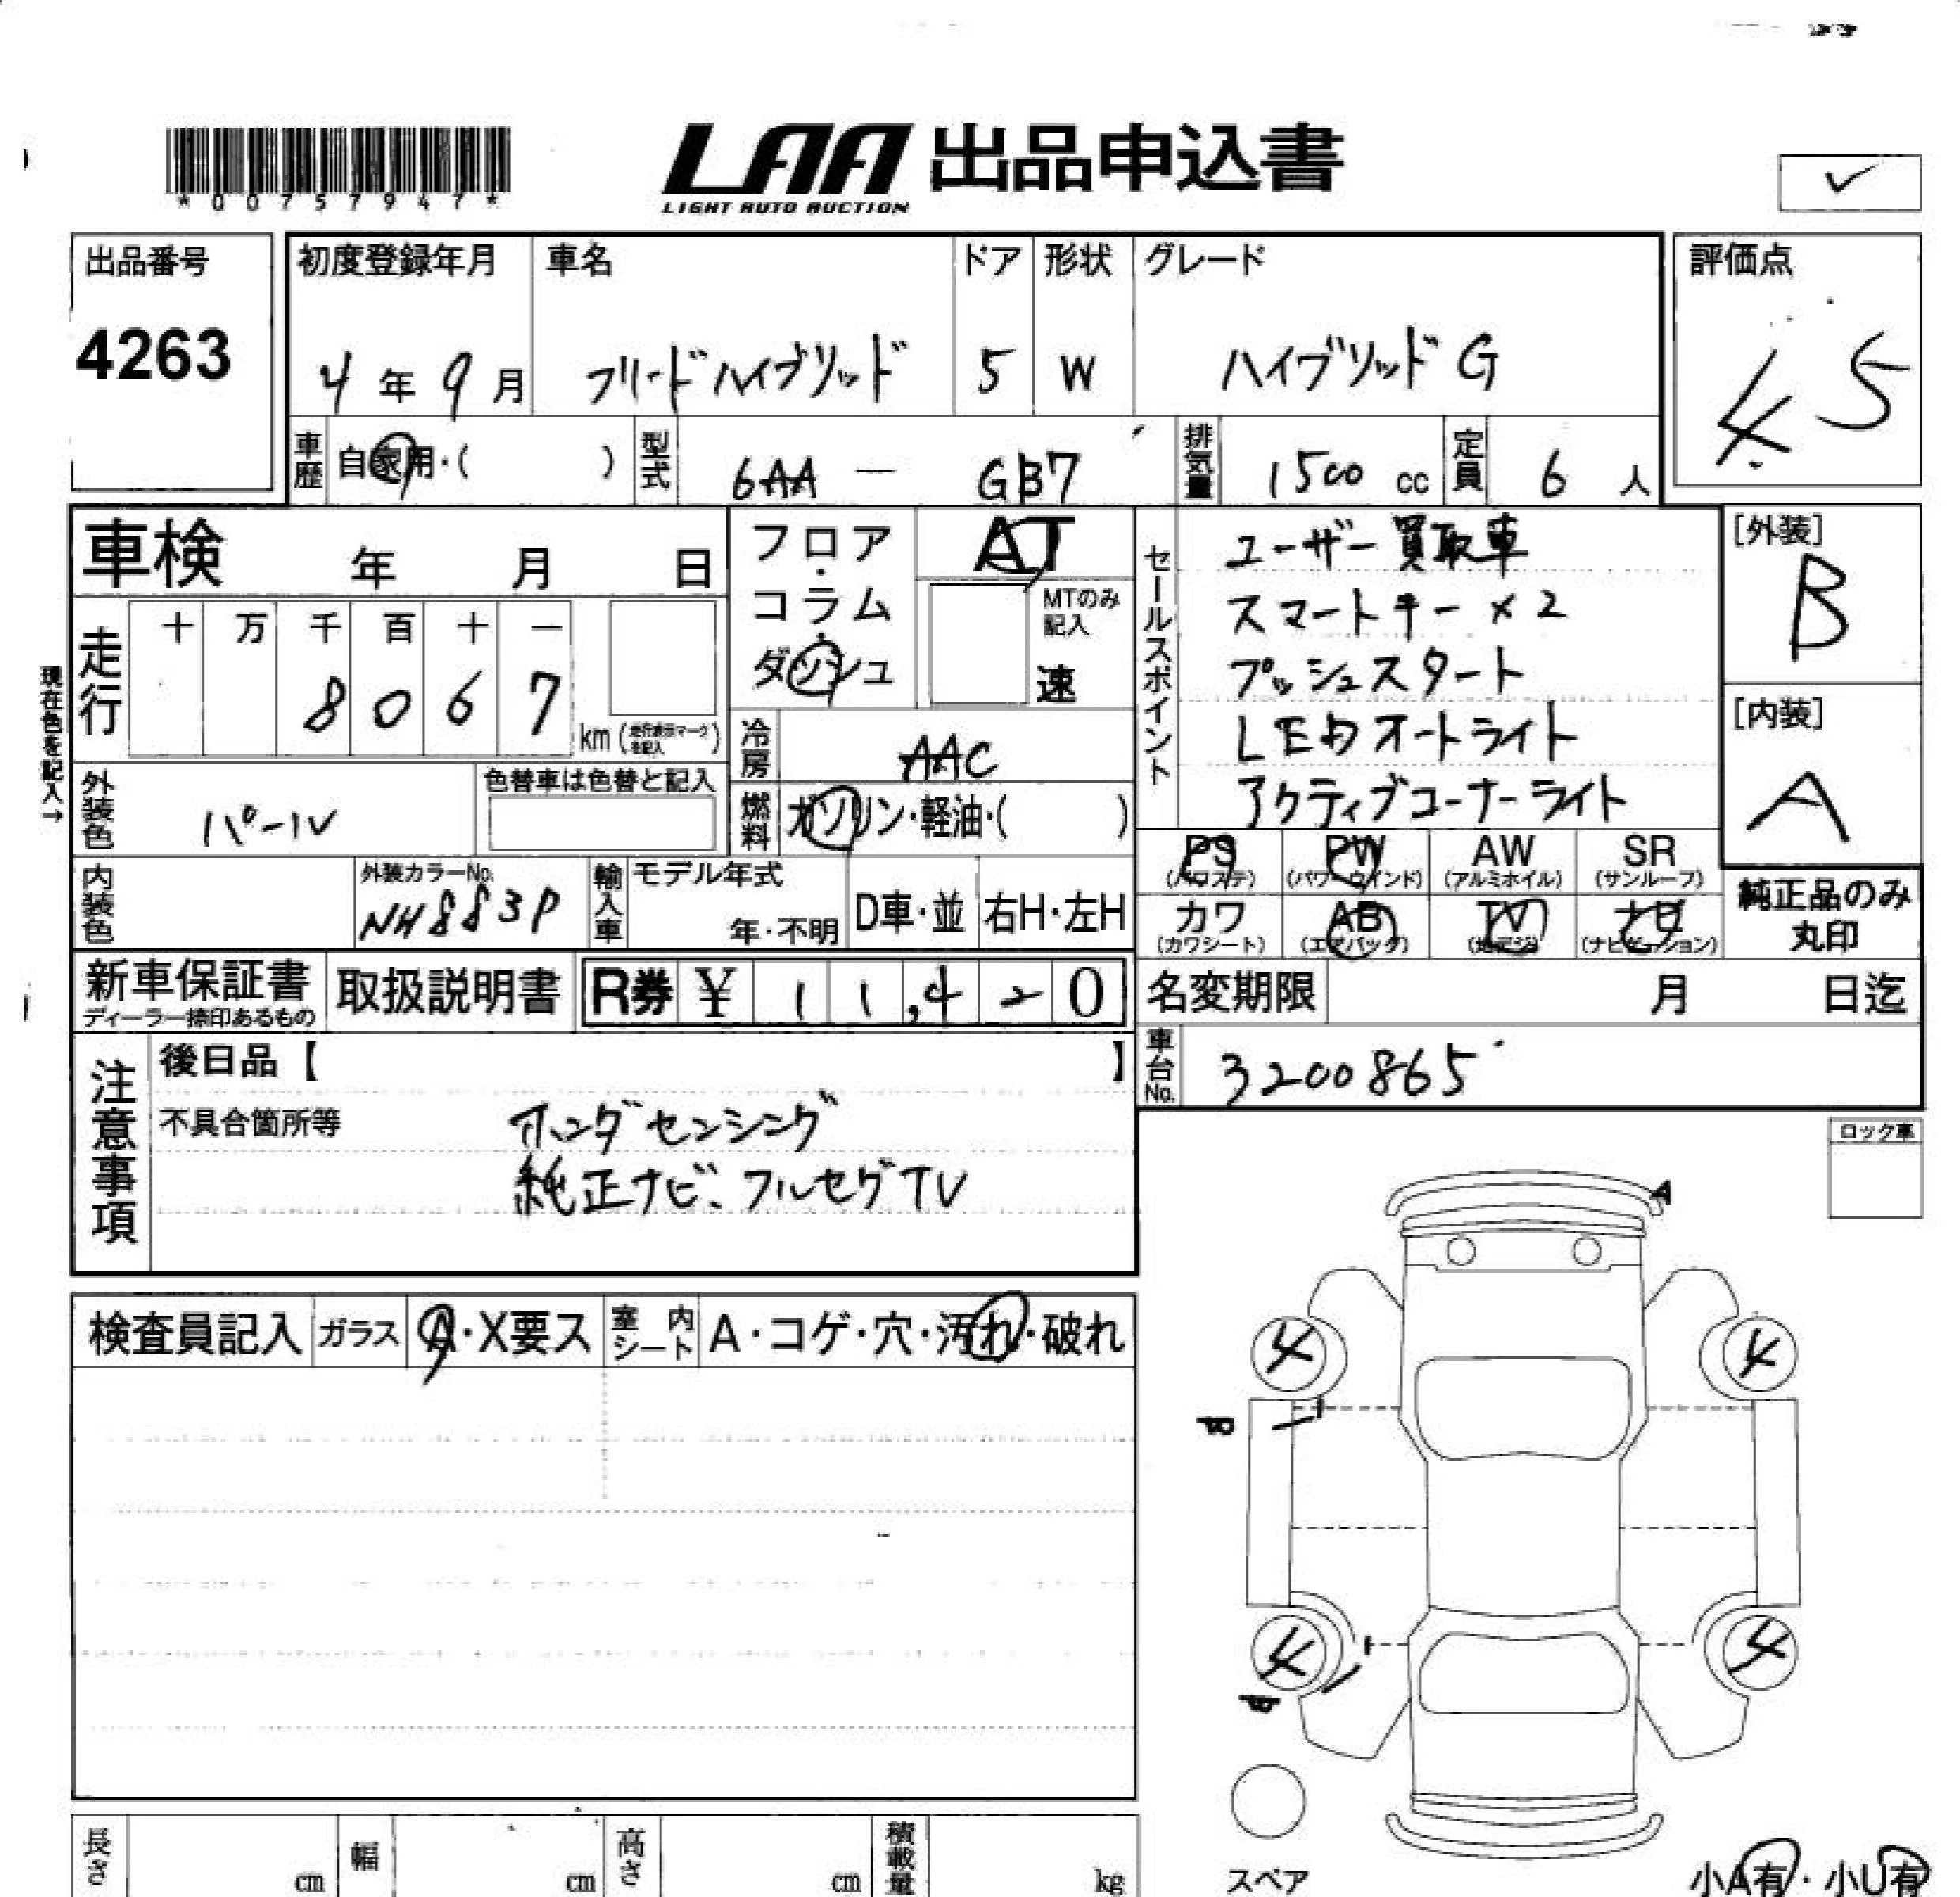 LAA 出品申込書
LIGHT AUTO AUCTION
*00757947*
出品番号
4263
初度登録年月
4年9月
車名
フリードハイブリッド
ドア
5
形状
W
グレード
ハイブリッドG
評価点
4.5
車歴 自家用・( )
型式 6AA — GB7
排気量 1500 cc
定員 6 人
車検 年 月 日
フロア・コラム・ダッシュ
AT
MTのみ記入
速
現在色を記入→
走行
十 万 千 百 十 一
8 0 6 7
km (走行表示マークを記入)
冷房 AAC
燃料 ガソリン・軽油・( )
外装色 パール
色替車は色替と記入
セールスポイント
ユーザー買取車
スマートキー×2
プッシュスタート
LEDオートライト
アクティブコーナーライト
[外装]
B
[内装]
A
内装色
外装カラーNo.
NH883P
輸入車
モデル年式
年・不明
D車・並
右H・左H
PS (パワステ)
PW (パワーウインド)
AW (アルミホイル)
SR (サンルーフ)
カワ (カワシート)
AB (エアバッグ)
TV (地デジ)
ナビ (ナビゲーション)
純正品のみ丸印
新車保証書
ディーラー捺印あるもの
取扱説明書
R券 ¥ 11,420
名変期限 月 日迄
車台No. 3200865
注意事項
後日品【 】
不具合箇所等
ホンダセンシング
純正ナビ、フルセグTV
ロック車
A
検査員記入
ガラス A・X要ス
室内シート A・コゲ・穴・汚れ・破れ
4 4
4 4
スペア
小A有・小U有
長さ cm
幅 cm
高さ cm
積載量 kg